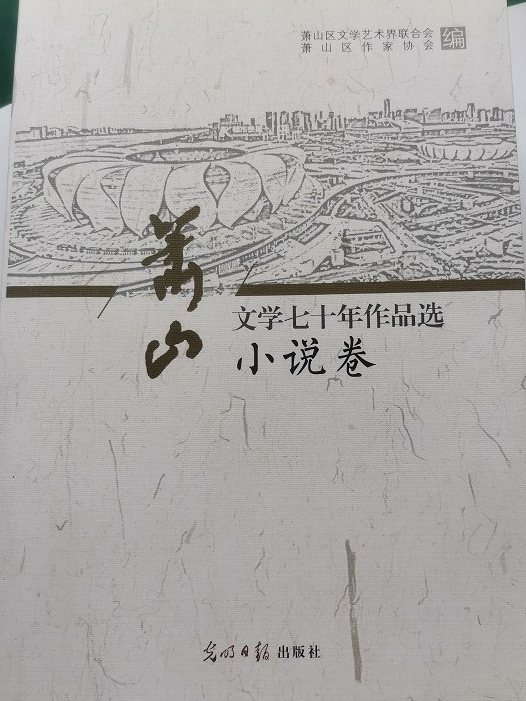 萧山区文学艺术界联合会
萧山区作家协会
编
萧山
文学七十年作品选
小说卷
光明日报出版社